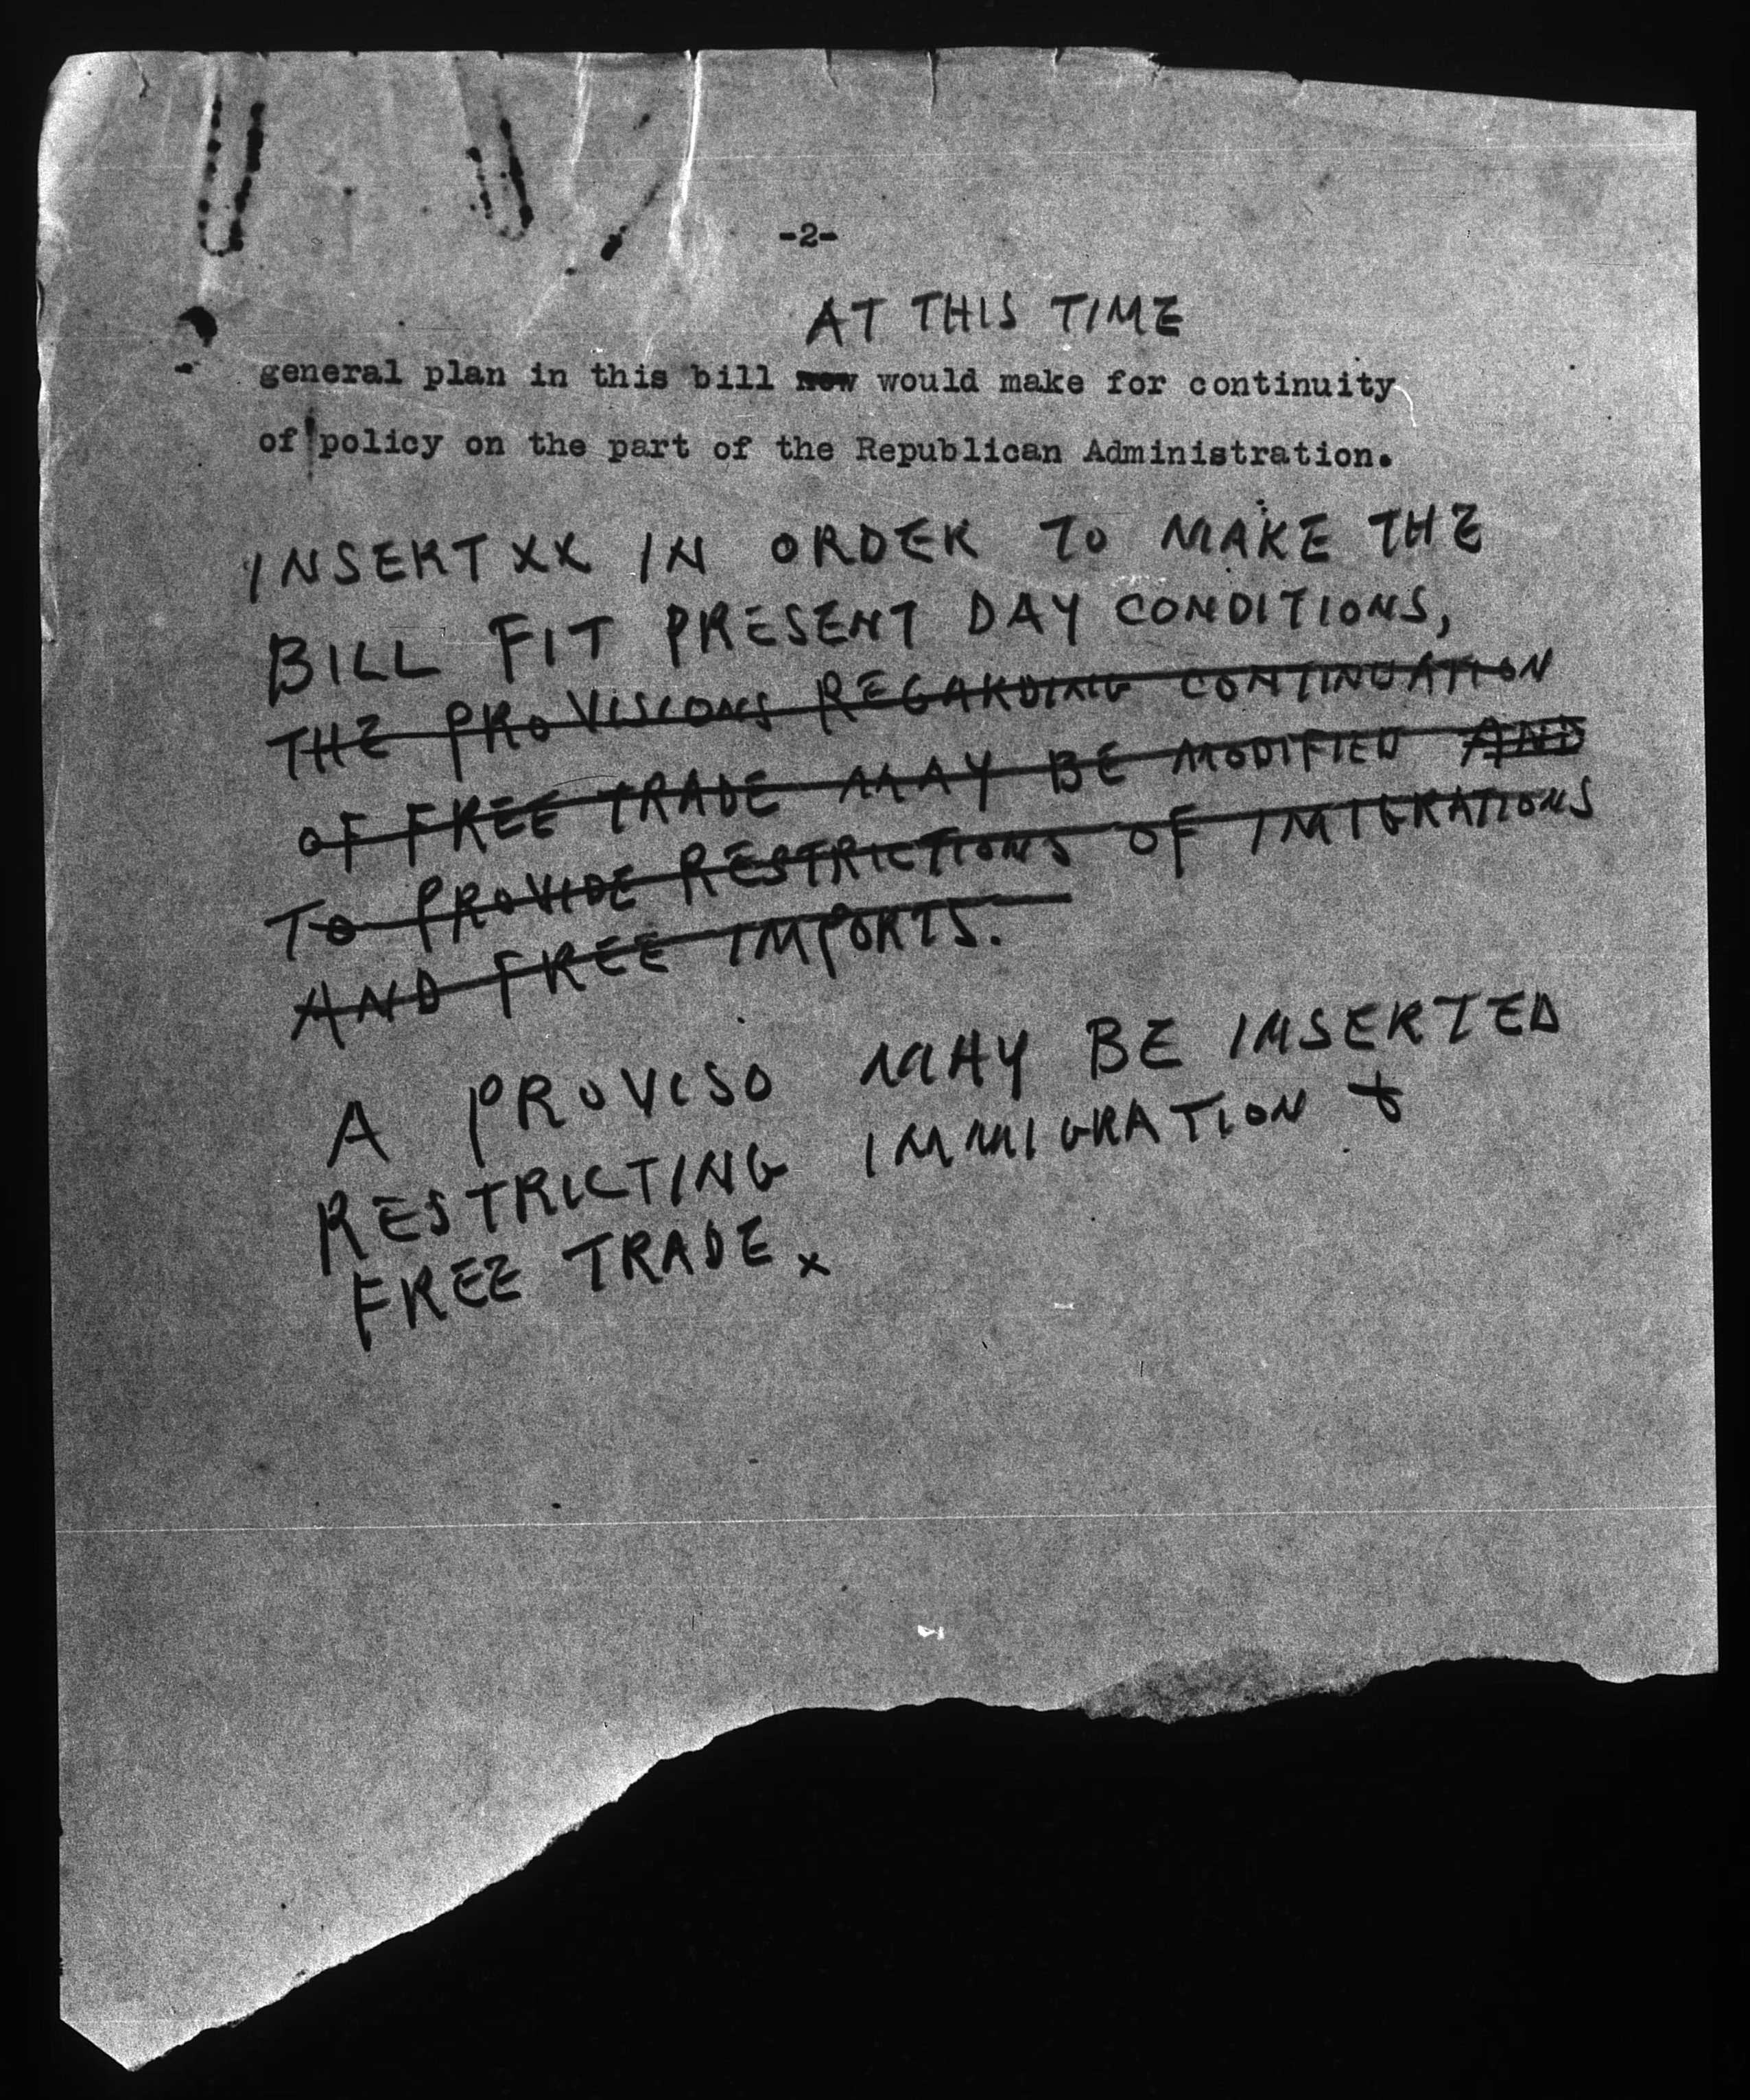 -2-
AT THIS TIME
general plan in this bill now would make for continuity
of policy on the part of the Republican Administration.
INSERT XX IN ORDER TO MAKE THE
BILL FIT PRESENT DAY CONDITIONS,
THE PROVISIONS REGARDING CONTINUATION
OF FREE TRADE MAY BE MODIFIED AND
TO PROVIDE RESTRICTIONS OF IMIGRATIONS
AND FREE IMPORTS.
A PROVISO MAY BE INSERTED
RESTRICTING IMMIGRATION &
FREE TRADE. x